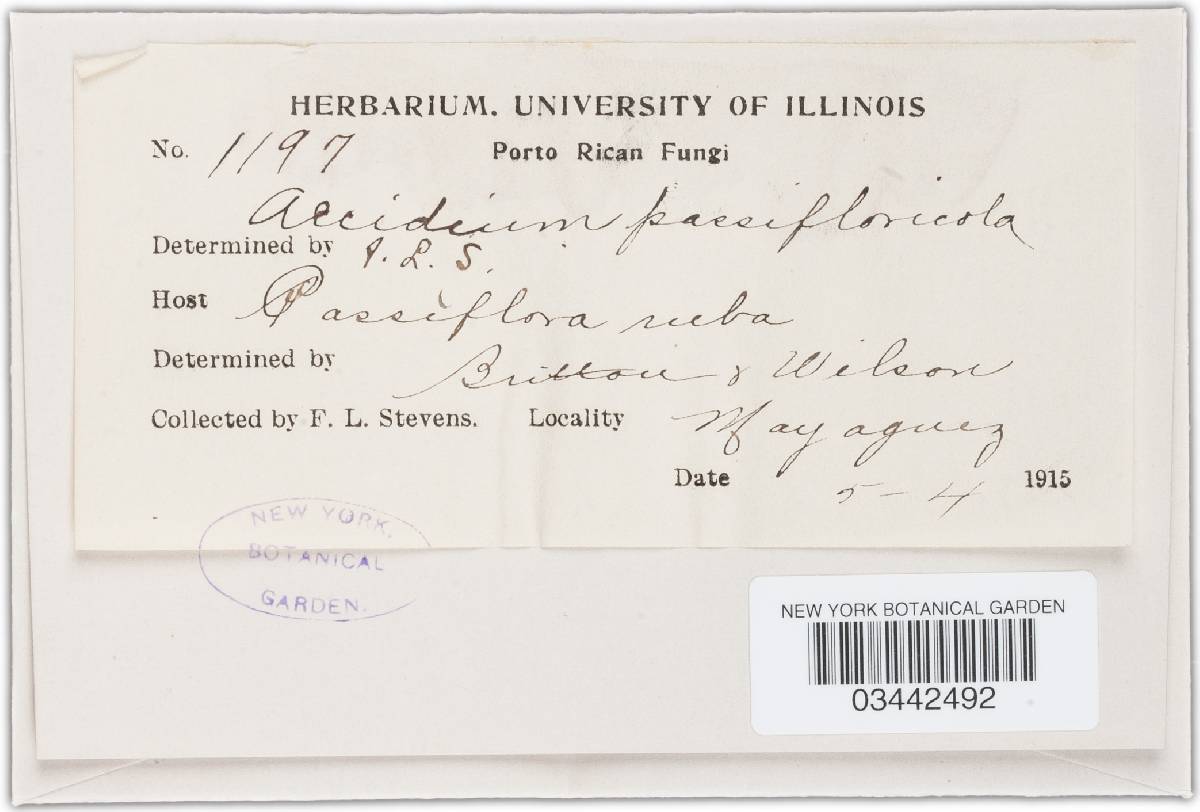 HERBARIUM. UNIVERSITY OF ILLINOIS
No. 1197 Porto Rican Fungi
Aecidium passifloricola
Determined by F. L. S.
Host Passiflora rubra
Determined by Britton & Wilson
Collected by F. L. Stevens. Locality Mayaguez
Date 5-4 1915
NEW YORK.
BOTANICAL
GARDEN.
NEW YORK BOTANICAL GARDEN
03442492